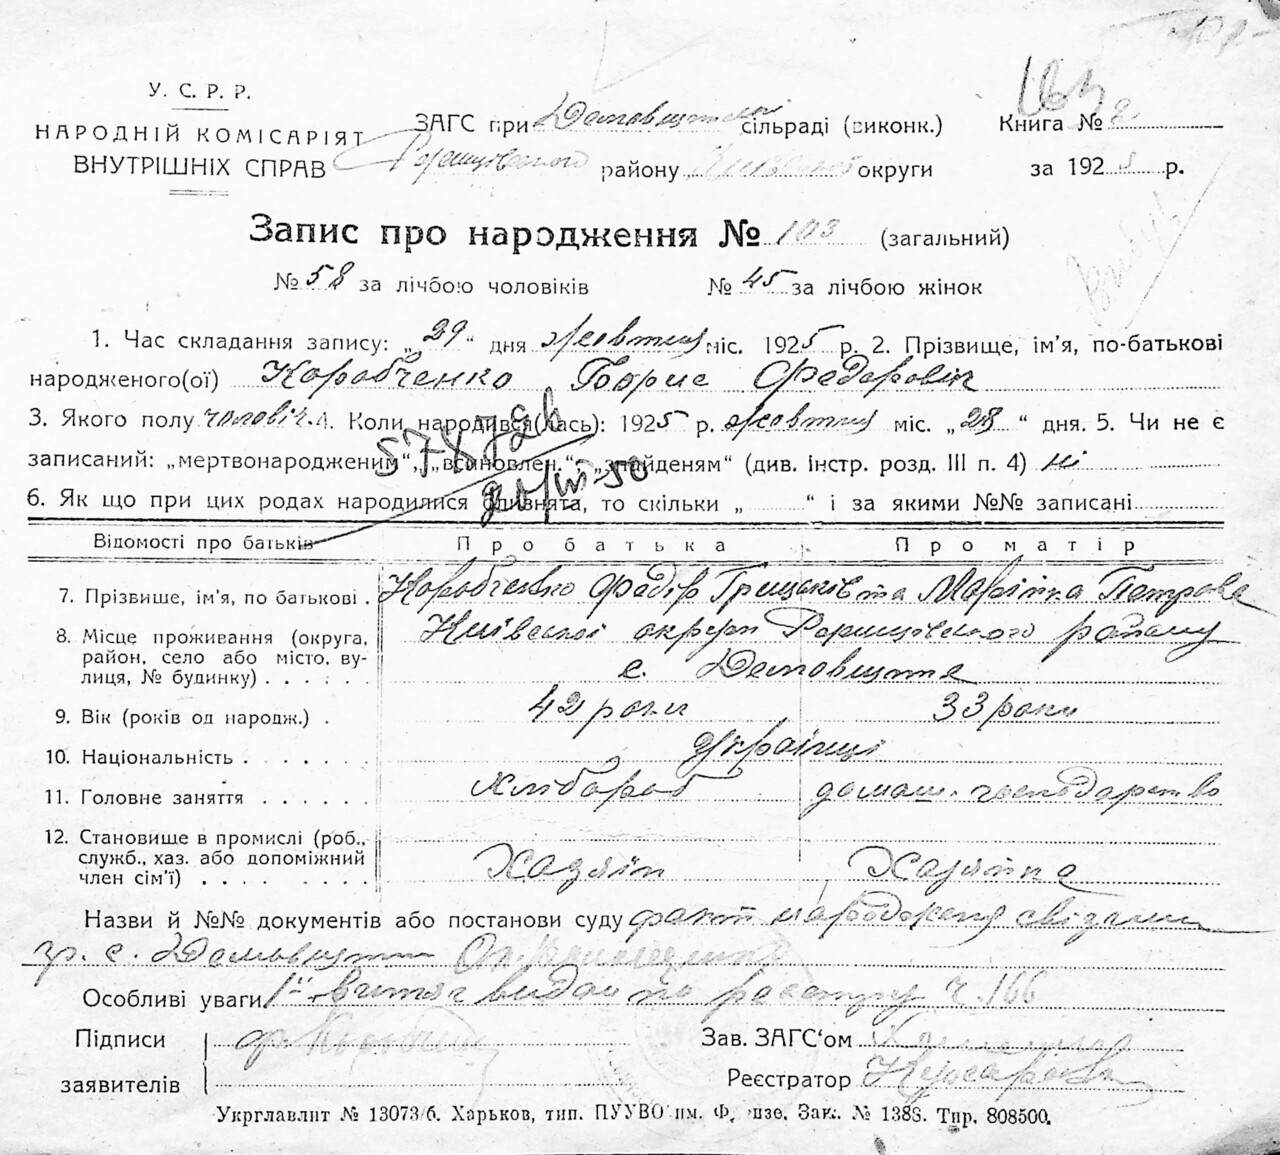 У. С. Р. Р.
НАРОДНІЙ КОМІСАРІЯТ
ВНУТРІШНІХ СПРАВ
ЗАГС при сільраді (виконк.)
району округи
Книга № 2
за 1925 р.
Запис про народження № 103 (загальний)
№ 58 за лічбою чоловіків № 45 за лічбою жінок
1. Час складання запису: „29“ дня жовтня міс. 1925 р. 2. Прізвище, ім'я, по-батькові
народженого(ої) Коробченко Борис Федорович
3. Якого полу чоловіч. 4. Коли народився(лась): 1925 р. жовтня міс. „28“ дня. 5. Чи не є
записаний: „мертвонародженим“, „встановлен.“, „знайденям“ (див. інстр. розд. III п. 4) ні
6. Як що при цих родах народилися близнята, то скільки „ “ і за якими №№ записані
Відомості про батьків Про батька Про матір
7. Прізвище, ім'я, по батькові . Коробченко Федір Грицьків та Марійка Петрова
8. Місце проживання (округа, район, село або місто, вулиця, № будинку) Київської округи района
с.
9. Вік (років од народж.) . 42 роки 33 роки
10. Національність . . . . . . українці
11. Головне заняття . . . . . . Хлібороб домаш. господарство
12. Становище в промислі (роб., служб., хаз. або допоміжний член сім'ї) . . . . . . . . Хазяїн Хазяйка
Назви й №№ документів або постанови суду факт народження
гр. с.
Особливі уваги 1й витяг видан по реєстру ч. 166
Підписи
заявителів
Зав. ЗАГС'ом
Реєстратор
Укрглавлит № 13073/б. Харьков, тип. ПУУВО им. Фрунзе. Зак. № 1388. Тир. 808500.